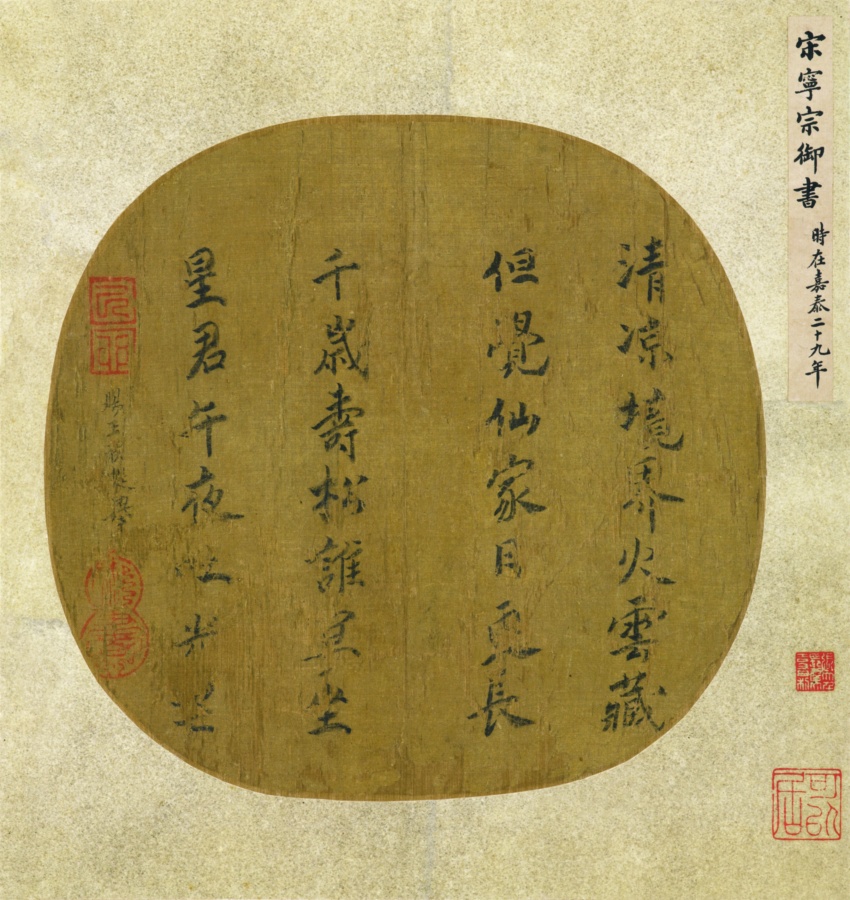 宋寧宗御書 時在嘉泰二十九年
清凉境界火雲藏
但覺仙家日更長
千歲壽松誰共坐
星君午夜吐光芒
賜王